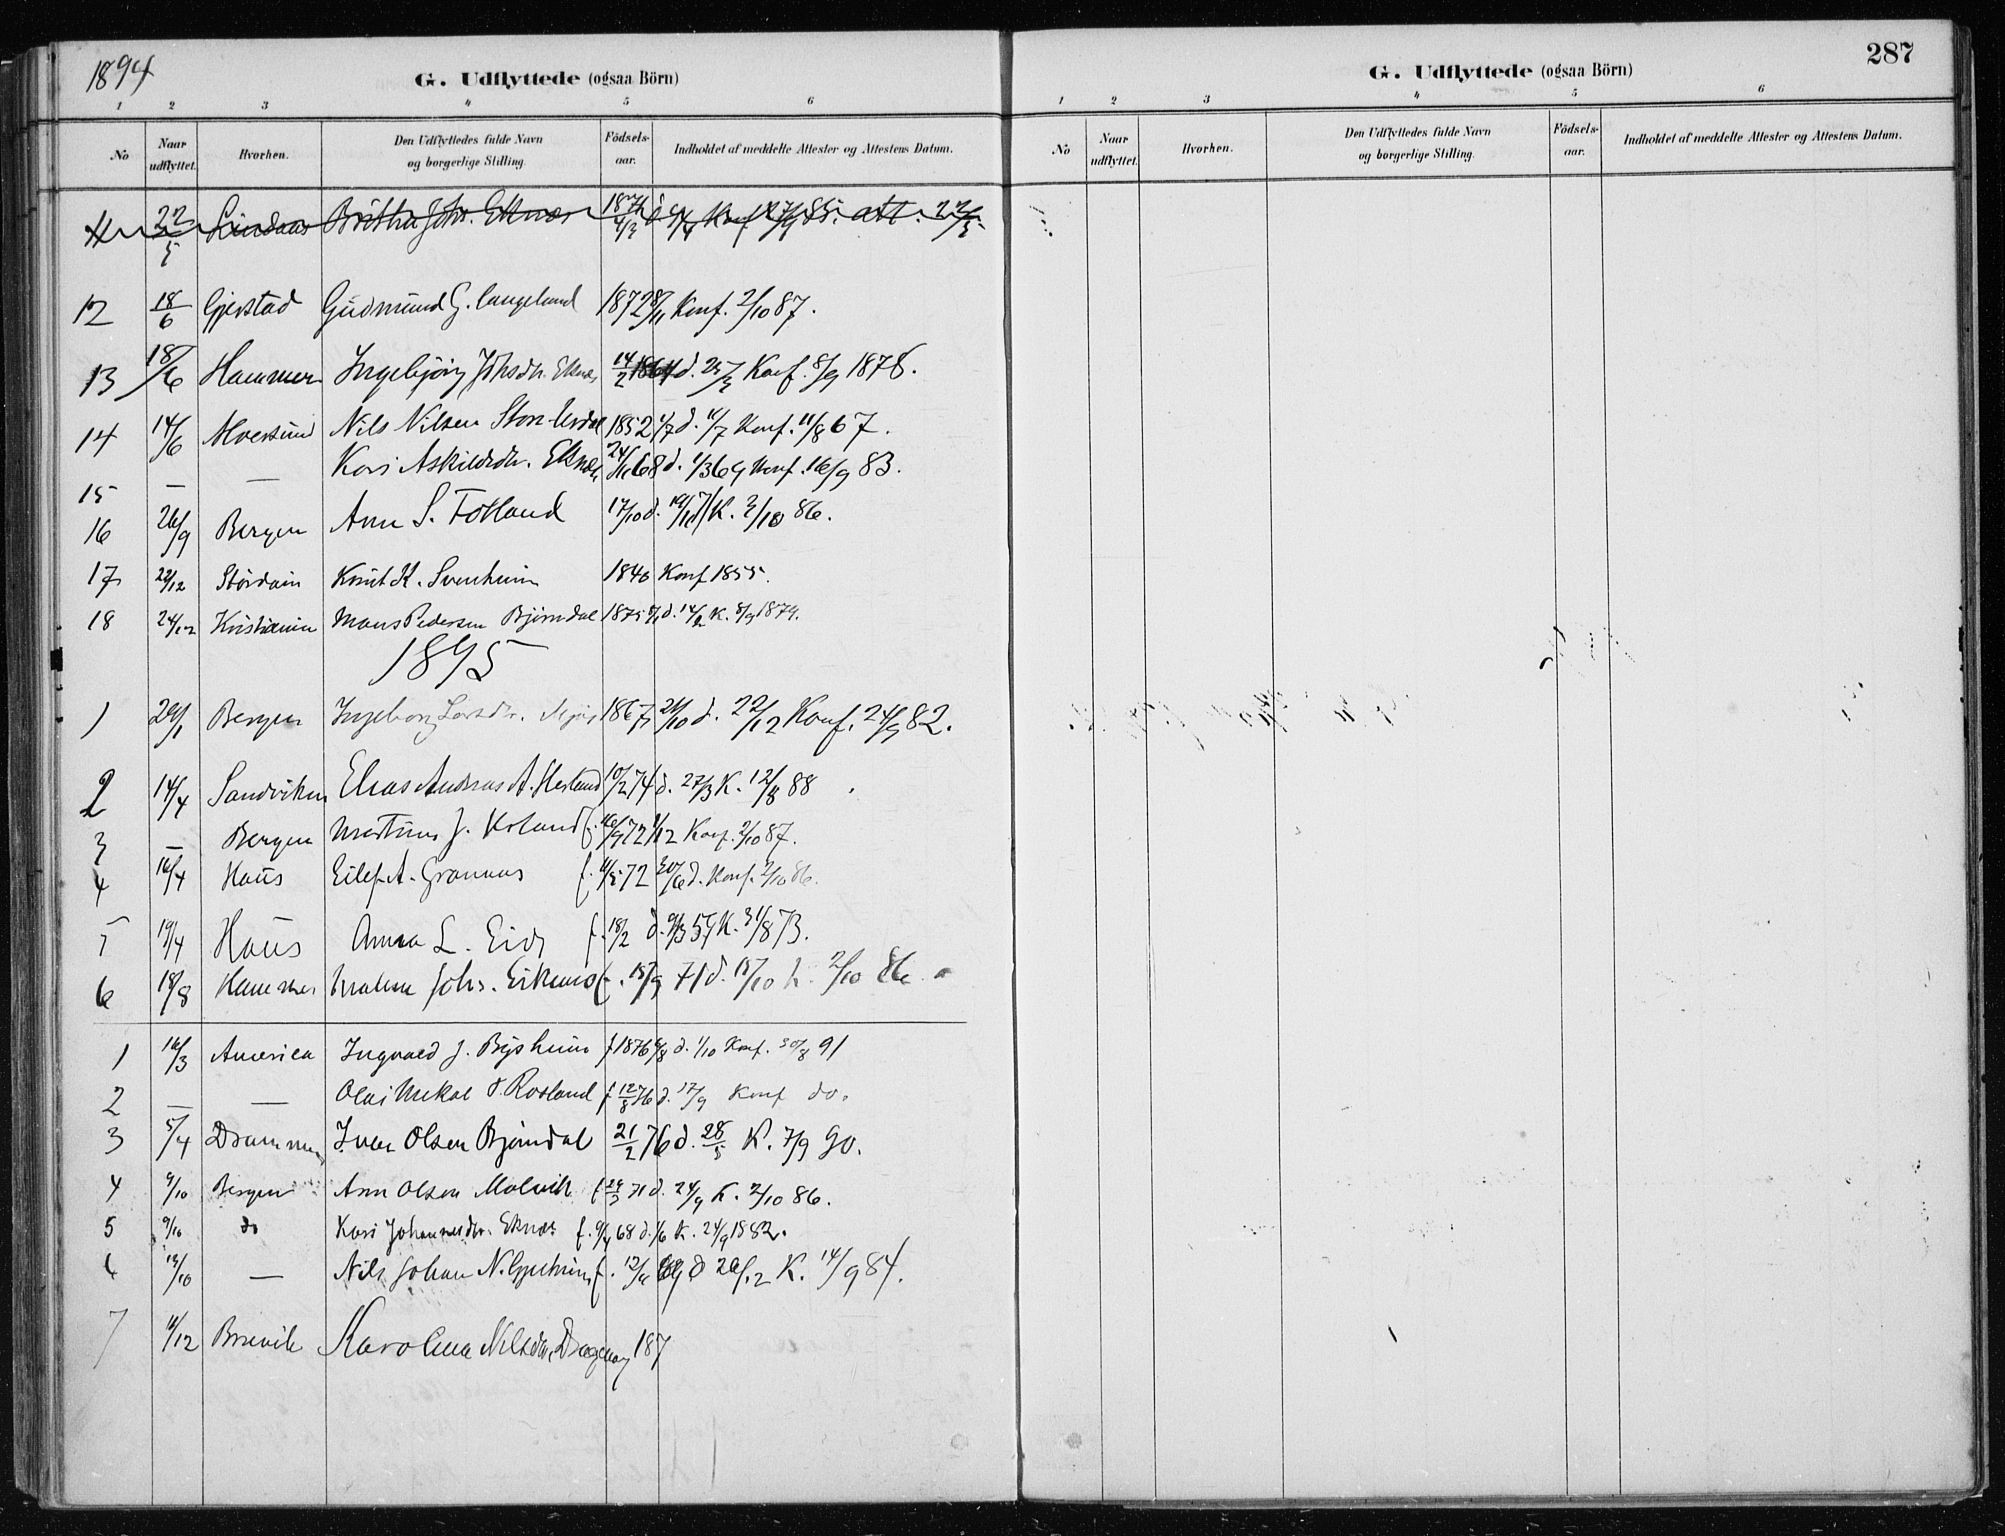 1894
G. Udflyttede (ogsaa Börn)
1 2 3 4 5 6
No Naar udflyttet. Hvorhen. Den Udflyttedes fulde Navn og borgerlige Stilling. Födsels-aar. Indholdet af meddelte Attester og Attestens Datum.
22/5 Lindaas Britha Johs. Eknæs Konf att. 22/5
12 18/6 Gjerstad Gudmund G. Langeland 1872 Konf. 2/10 87.
13 18/6 Hammer Ingebjörg Johsdr. Eknæs 14/2 1864 d. Konf. 8/9 1878.
14 14/6 Alversund Nils Nilsen 1852 1/7 d. 11/7 Konf. 11/8 67.
15 — — Kari Askildsdr. Eknæs 24/11 68 d. 1/3 69 Konf. 16/9 83.
16 26/9 Bergen Ann S. Fotland 17/10 d. K. 3/10 86.
17 22/12 Stördain Knut K. Svenheim 1840 Konf 1855.
18 24/12 Kristiania Mons Pedersen Björndal 1875 d. 14/2 K. 8/9 1879.
1895
1 29/1 Bergen Ingeborg Larsdr. 1867 21/10 d. 22/12 Konf. 24/9 82.
2 14/4 Sandviken Elias Andreas A. Herland 10/2 74 d. 27/3 K. 12/8 88
3 — Bergen J. f. 16/9 72 1/12 Konf. 2/10 87.
4 16/4 Haus Eilef A. Grannes f. 72 30/6 d. Konf. 2/10 86.
5 19/4 Haus Anna L. Eide f. 18/2 d. 9/3 59 K. 31/8 73.
6 18/8 Hammer Malene Johs. Eiknes f. 15/9 71 d. 15/10 K. 2/10 86.
1 16/3 America Ingvald J. Bysheim f 1876 6/8 d. 1/10 Konf. 30/8 91
2 — — Olai Mikal Rosland f 12/8 76 d. 17/9 Konf do.
3 5/4 Drammen Iver Olsen Björndal 21/2 76 d. 28/5 K. 7/9 90.
4 9/10 Bergen Ann Olsen Molvik f 71 d. 24/9 K. 2/10 86.
5 9/10 do Kari Johannesdr. Eknæs f. 9/4 68 d. 1/6 K. 24/9 1882.
6 12/10 — Nils Johan N. f. 12/11 69 d 26/12 K. 14/9 84.
7 11/12 Brevik Karolina Nilsdr. 187
287
G. Udflyttede (ogsaa Börn)
1 2 3 4 5 6
No Naar udflyttet. Hvorhen. Den Udflyttedes fulde Navn og borgerlige Stilling. Födsels-aar. Indholdet af meddelte Attester og Attestens Datum.